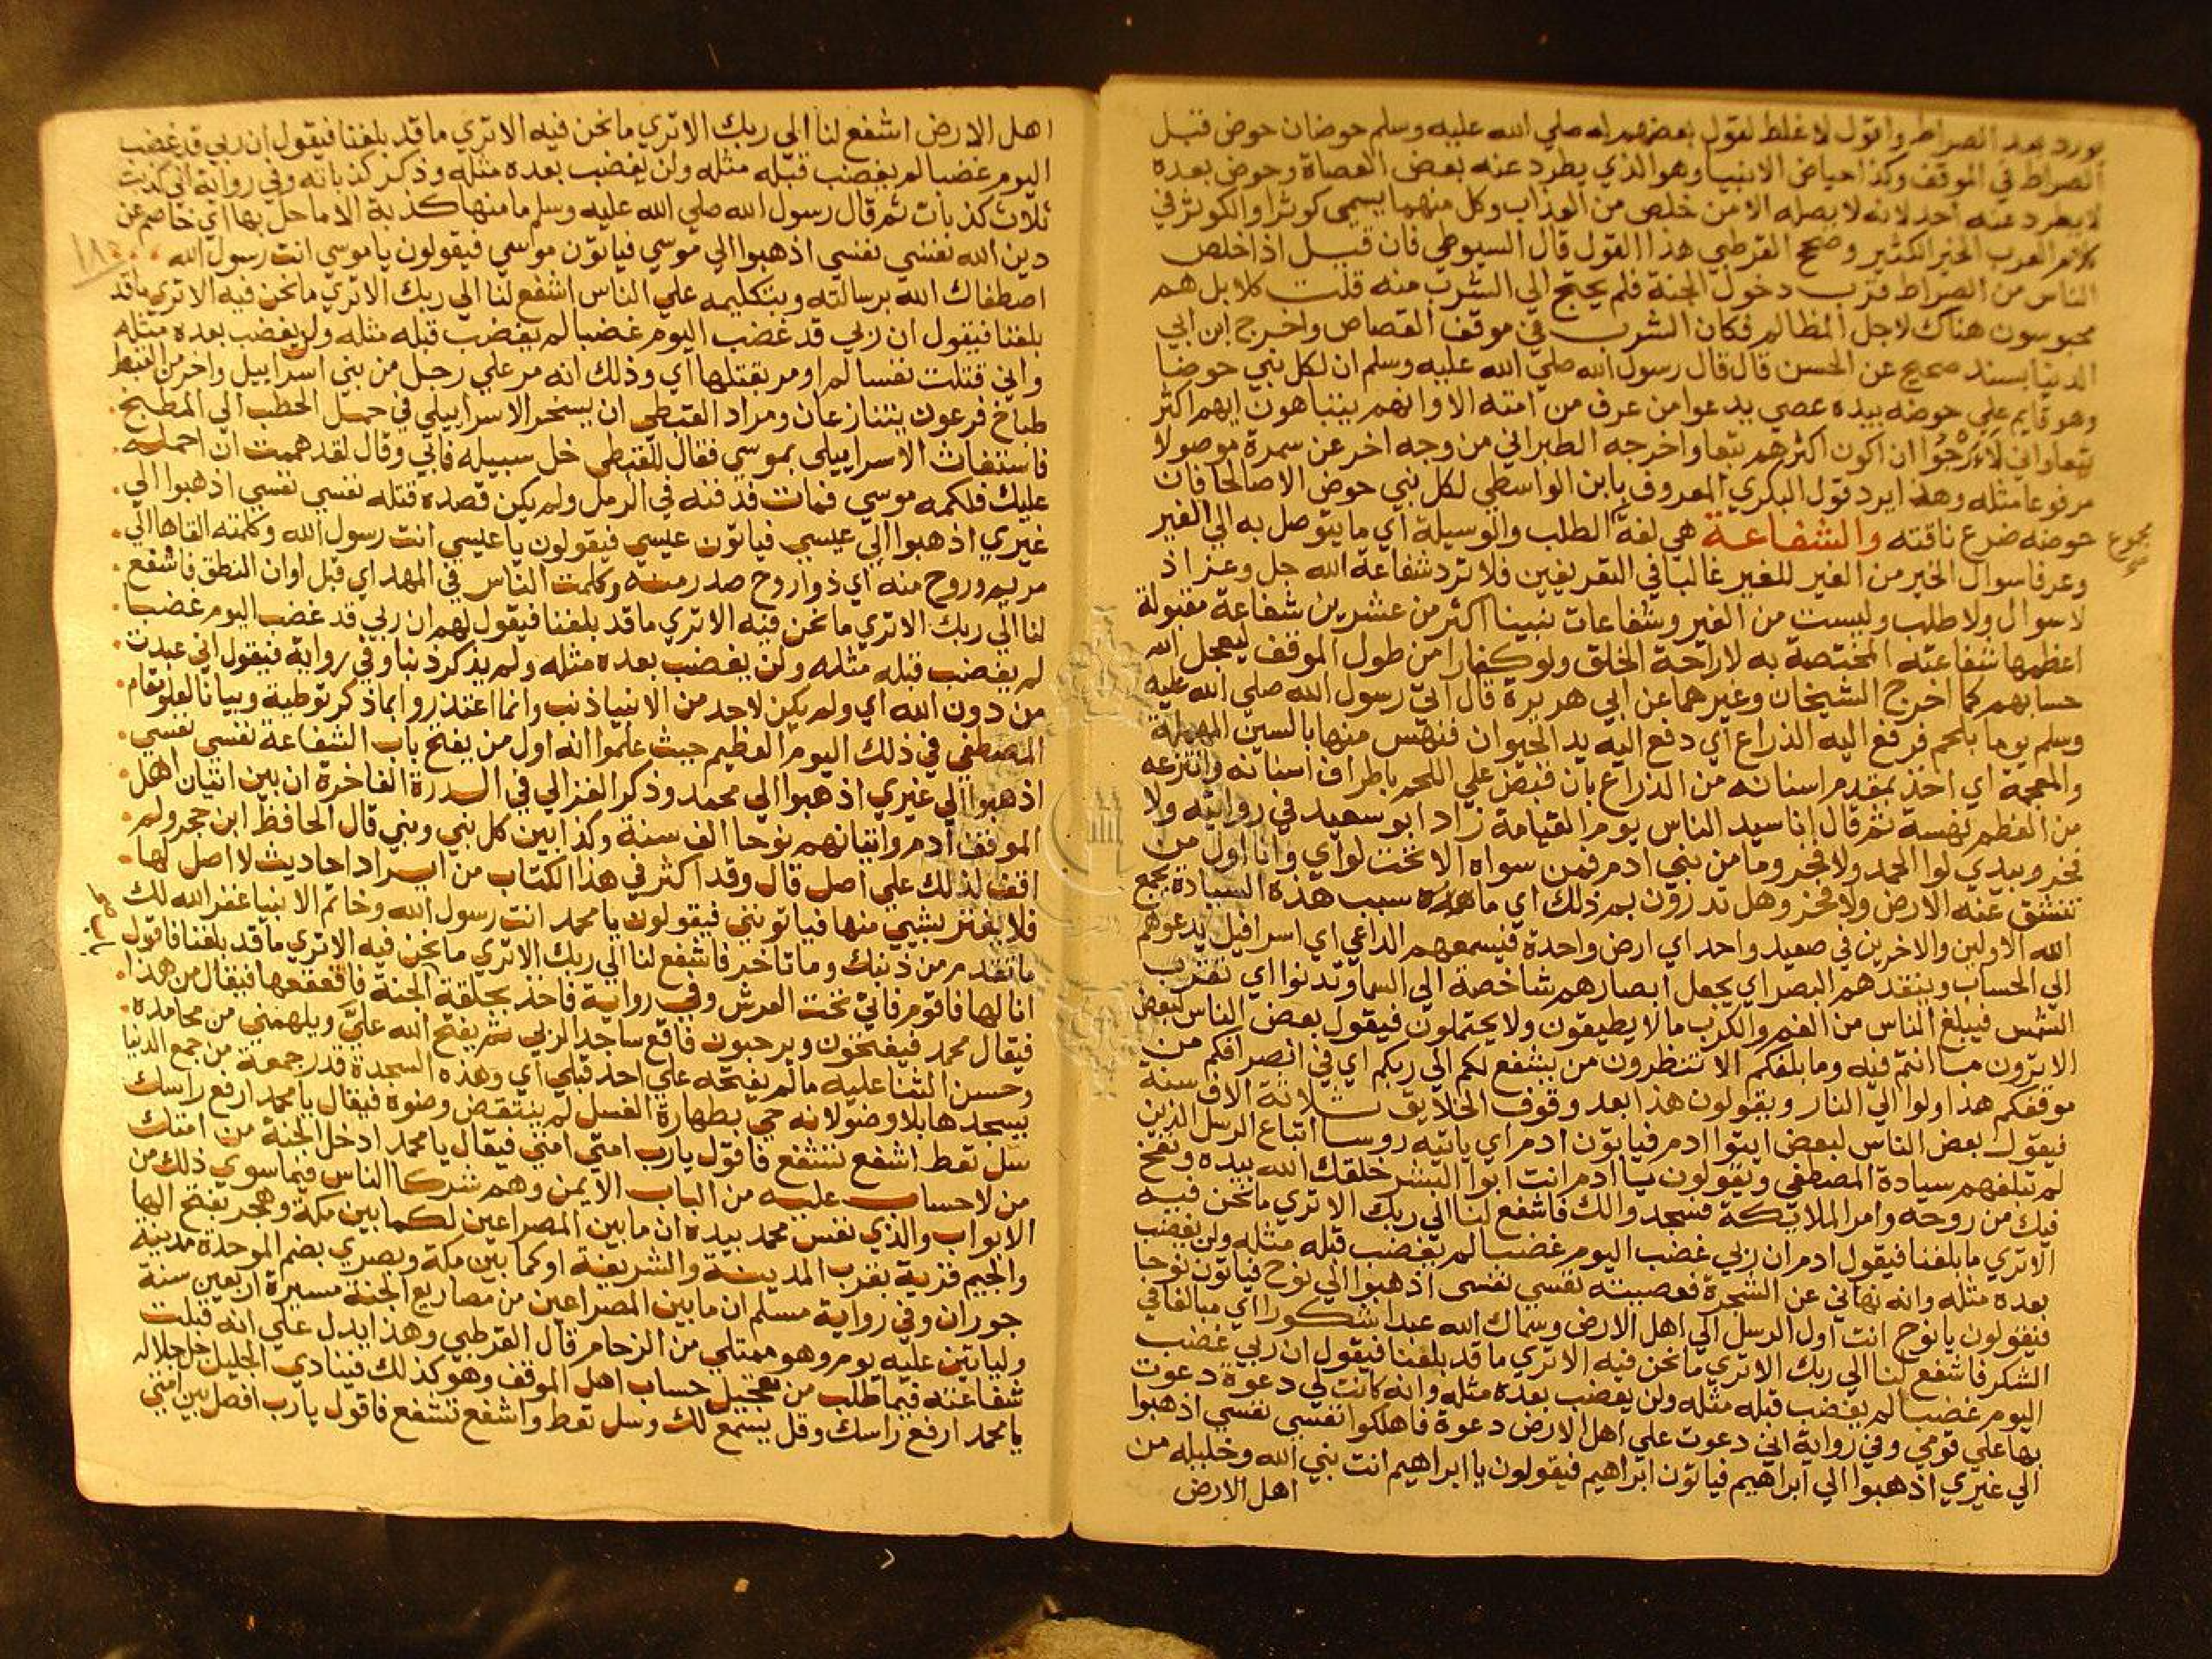 يورد بعد الصراط واقول لا غلط لقول بعضهم له صلي الله عليه وسلم حوضان حوض قبل
الصراط في الموقف وكذا حياض الانبيا وهو الذي يطرد عنه بعض العصاة وحوض بعده
لا يطرد عنه احد لانه لا يصله الا من خلص من العذاب وكل منهما يسمي كوثرا والكوثر في
كلام العرب الخير الكثير وصحح القرطبي هذا القول قال السيوطي فان قيل اذا خلص
الناس من الصراط قرب دخول الجنة فلم يحتج الي الشرب منه قلت كلا بل هم
محبوسون هناك لاجل المظالم فكان الشرب في موقف القصاص واخرج ابن ابي
الدنيا بسند صحيح عن الحسن قال قال رسول الله صلي الله عليه وسلم ان لكل نبي حوضا
وهو قايم علي حوضه بيده عصي يدعوا من عرف من امته الا وانهم يتباهون ايهم اكثر
تبعا واني لارجوا ان اكون اكثرهم تبعا واخرجه الطبراني من وجه اخر عن سمرة موصولا
مرفوعا مثله وهذا يرد قول البكري المعروف بابن الواسطي لكل نبي حوض الا صالحا فان
حوضه ضرع ناقته والشفاعة هي لغة الطلب والوسيلة اي ما يتوصل به الي الغير
وعرفا سوال الخير من الغير للغير غالبا في التعريفين فلا ترد شفاعة الله جل وعز اذ
لا سوال ولا طلب وليست من الغير وشفاعات نبينا اكثر من عشرين شفاعة مقبولة
اعظمها شفاعته المختصة به لاراحة الخلق ولو كفارا من طول الموقف ليعجل الله
حسابهم كما اخرج الشيخان وغيرهما عن ابي هريرة قال اتي رسول الله صلي الله عليه
وسلم يوما بلحم فرفع اليه الذراع اي دفع اليه يد الحيوان فنهس منها بالسين المهملة
والمعجمة اي اخذ بمقدم اسنانه من الذراع بان قبض علي اللحم باطراف اسنانه وانتزعه
من العظم نهسة ثم قال انا سيد الناس يوم القيامة زاد ابو سعيد في روايته ولا
فخر وبيدي لوا الحمد ولا فخر وما من نبي ادم فمن سواه الا تحت لواي وانا اول من
تنشق عنه الارض ولا فخر وهل تدرون بم ذلك اي ما سبب هذه السيادة يجمع
الله الاولين والاخرين في صعيد واحد اي ارض واحدة فيسمعهم الداعي اي اسرافيل يدعوهم
الي الحساب وينفذهم البصر اي يجعل ابصارهم شاخصة الي السما وتدنوا اي تقترب
الشمس فيبلغ الناس من الغم والكرب ما لا يطيقون ولا يحتملون فيقول بعض الناس لبعض
الا ترون ما انتم فيه وما بلغكم الا تنتظرون من يشفع لكم الي ربكم اي في انصرافكم من
موقفكم هذا ولوا الي النار ويقولون هذا بعد وقوف الخلايق ثلاثة الاف سنة
فيقول بعض الناس لبعض ايتوا ادم فياتون ادم اي ياتيه روسا اتباع الرسل الذين
لم تبلغهم سيادة المصطفي ويقولون يا ادم انت ابوا البشر خلقك الله بيده ونفخ
فيك من روحه وامر الملايكة فسجدوا لك فاشفع لنا الي ربك الا تري ما نحن فيه
الا تري ما بلغنا فيقول ادم ان ربي غضب اليوم غضبا لم يغضب قبله مثله ولن يغضب
بعده مثله وانه نهاني عن الشجرة فعصيته نفسي نفسي اذهبوا الي نوح فياتون نوحا
فيقولون يا نوح انت اول الرسل الي اهل الارض وسماك الله عبدا شكورا اي مبالغا في
الشكر فاشفع لنا الي ربك الا تري ما نحن فيه الا تري ما قد بلغنا فيقول ان ربي غضب
اليوم غضبا لم يغضب قبله مثله ولن يغضب بعده مثله وانه كانت لي دعوة دعوت
بها علي قومي وفي رواية اني دعوت علي اهل الارض دعوة فاهلكوا نفسي نفسي اذهبوا
الي غيري اذهبوا الي ابراهيم فياتون ابراهيم فيقولون يا ابراهيم انت نبي الله وخليله من
اهل الارض
اهل الارض اشفع لنا الي ربك الا تري ما نحن فيه الا تري ما قد بلغنا فيقول ان ربي قد غضب
اليوم غضبا لم يغضب قبله مثله ولن يغضب بعده مثله وذكر كذباته وفي رواية اني كذبت
ثلاث كذبات ثم قال رسول الله صلي الله عليه وسلم ما منها كذبة الا ما حل بها اي خاصم عن
دين الله نفسي نفسي اذهبوا الي موسي فياتون موسي فيقولون يا موسي انت رسول الله
١٨
اصطفاك الله برسالته وبتكليمه علي الناس اشفع لنا الي ربك الا تري ما نحن فيه الا تري ما قد
بلغنا فيقول ان ربي قد غضب اليوم غضبا لم يغضب قبله مثله ولن يغضب بعده مثله
واني قتلت نفسا لم اومر بقتلها اي وذلك انه مر علي رجل من بني اسراييل واخر من القبط
طباخ فرعون يتنازعان ومراد القبطي ان يسخر الاسراييلي في حمل الحطب الي المطبخ
فاستغاث الاسراييلي بموسي فقال للقبطي خل سبيله فابي وقال لقد هممت ان احمله
عليك فلكمه موسي فمات فدفنه في الرمل ولم يكن قصده قتله نفسي نفسي اذهبوا الي
غيري اذهبوا الي عيسي فياتون عيسي فيقولون يا عيسي انت رسول الله وكلمته القاها الي
مريم وروح منه اي ذو روح صدر منه وكلمت الناس في المهد اي قبل اوان النطق فاشفع
لنا الي ربك الا تري ما نحن فيه الا تري ما قد بلغنا فيقول لهم ان ربي قد غضب اليوم غضبا
لم يغضب قبله مثله ولن يغضب بعده مثله ولم يذكر ذنبا وفي رواية فيقول اني عبدت
من دون الله اي ولم يكن لاحد من الانبيا ذنب وانما اعتذروا بما ذكر توطية وبيانا لعلو مقام
المصطفي في ذلك اليوم العظيم حيث علموا انه اول من يفتح باب الشفاعة نفسي نفسي
اذهبوا الي غيري اذهبوا الي محمد وذكر الغزالي في الدرة الفاخرة ان بين اتيان اهل
الموقف ادم واتيانهم نوحا الف سنة وكذا بين كل نبي ونبي قال الحافظ ابن حجر ولم
اقف لذلك علي اصل قال وقد اكثر في هذا الكتاب من ايراد احاديث لا اصل لها
فلا يغتر بشيي منها فياتونني فيقولون يا محمد انت رسول الله وخاتم الانبيا غفر الله لك
ما تقدم من ذنبك وما تاخر فاشفع لنا الي ربك الا تري ما نحن فيه الا تري ما قد بلغنا فاقول
انا لها فاقوم فاتي تحت العرش وفي رواية فاخذ بحلقة الجنة فاقعقعها فيقال من هذا
فيقال محمد فيفتحون ويرحبون فاقع ساجدا لربي ثم يفتح الله علي ويلهمني من محامده
وحسن الثنا عليه ما لم يفتحه علي احد قبلي اي وهذه السجدة قدر جمعة من جمع الدنيا
يسجدها بلا وضو لانه حي بطهارة الغسل لم ينتقض وضوه فيقال يا محمد ارفع راسك
سل تعط اشفع تشفع فاقول يا رب امتي امتي فيقال يا محمد ادخل الجنة من امتك
من لا حساب عليه من الباب الايمن وهم شركا الناس فيما سوي ذلك من
الابواب والذي نفس محمد بيده ان ما بين المصراعين لكما بين مكة وهجر بفتح الها
والجيم قرية بقرب المدينة والشريفة او كما بين مكة وبصري بضم الموحدة مدينة
جوران وفي رواية مسلم ان ما بين المصراعين من مصاريع الجنة مسيرة اربعين سنة
ولياتين عليه يوم وهو ممتلي من الزحام قال القرطبي وهذا يدل علي انه قبلت
شفاعته فيما طلب من تعجيل حساب اهل الموقف وهو كذلك فينادي الجليل جل جلاله
يا محمد ارفع راسك وقل يسمع لك وسل تعط واشفع تشفع فاقول يا رب افصل بين امتي